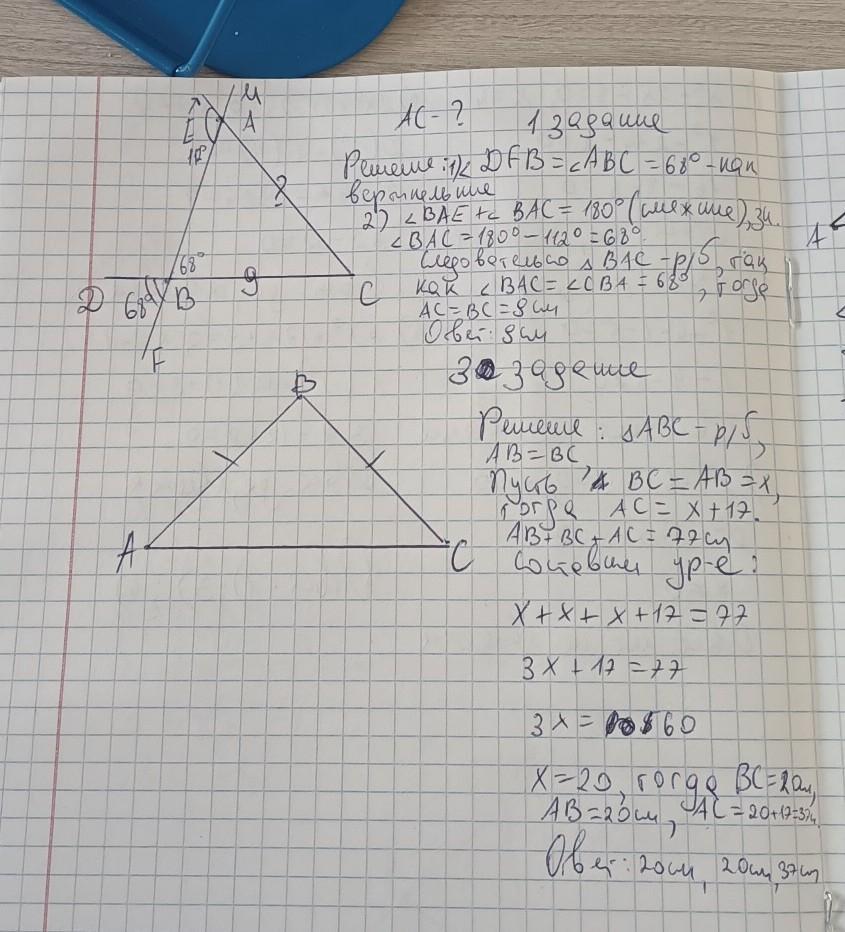 M
E
A
AC - ?
1 задание
Решение: 1) ∠DFB = ∠ABC = 68° - как
вертикальные
?
2) ∠BAE + ∠BAC = 180° (смежные), зн.
∠BAC = 180° - 112° = 68°.
68°
Следовательно △ BAC - р/б, так
D
68°
B
9
C
как ∠BAC = ∠CBA = 68°, тогда
AC = BC = 9см
Ответ: 9см
F
3 задание
B
Решение: △ABC - р/б,
AB = BC
Пусть BC = AB = x,
тогда AC = x + 17.
AB + BC + AC = 77см
A
C
Составим ур-е:
x + x + x + 17 = 77
3x + 17 = 77
3x = 60
x = 20, тогда BC = 20см,
AB = 20см, AC = 20+17=37см.
Ответ: 20см, 20см, 37см
A